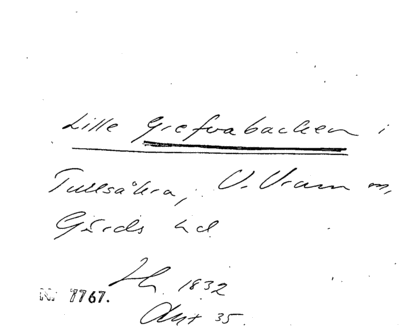 Lille Grefvabacken i
Tullsåkra, V. Vram sn,
Gärds hd
1832
Nr 7767.
Akt 35.